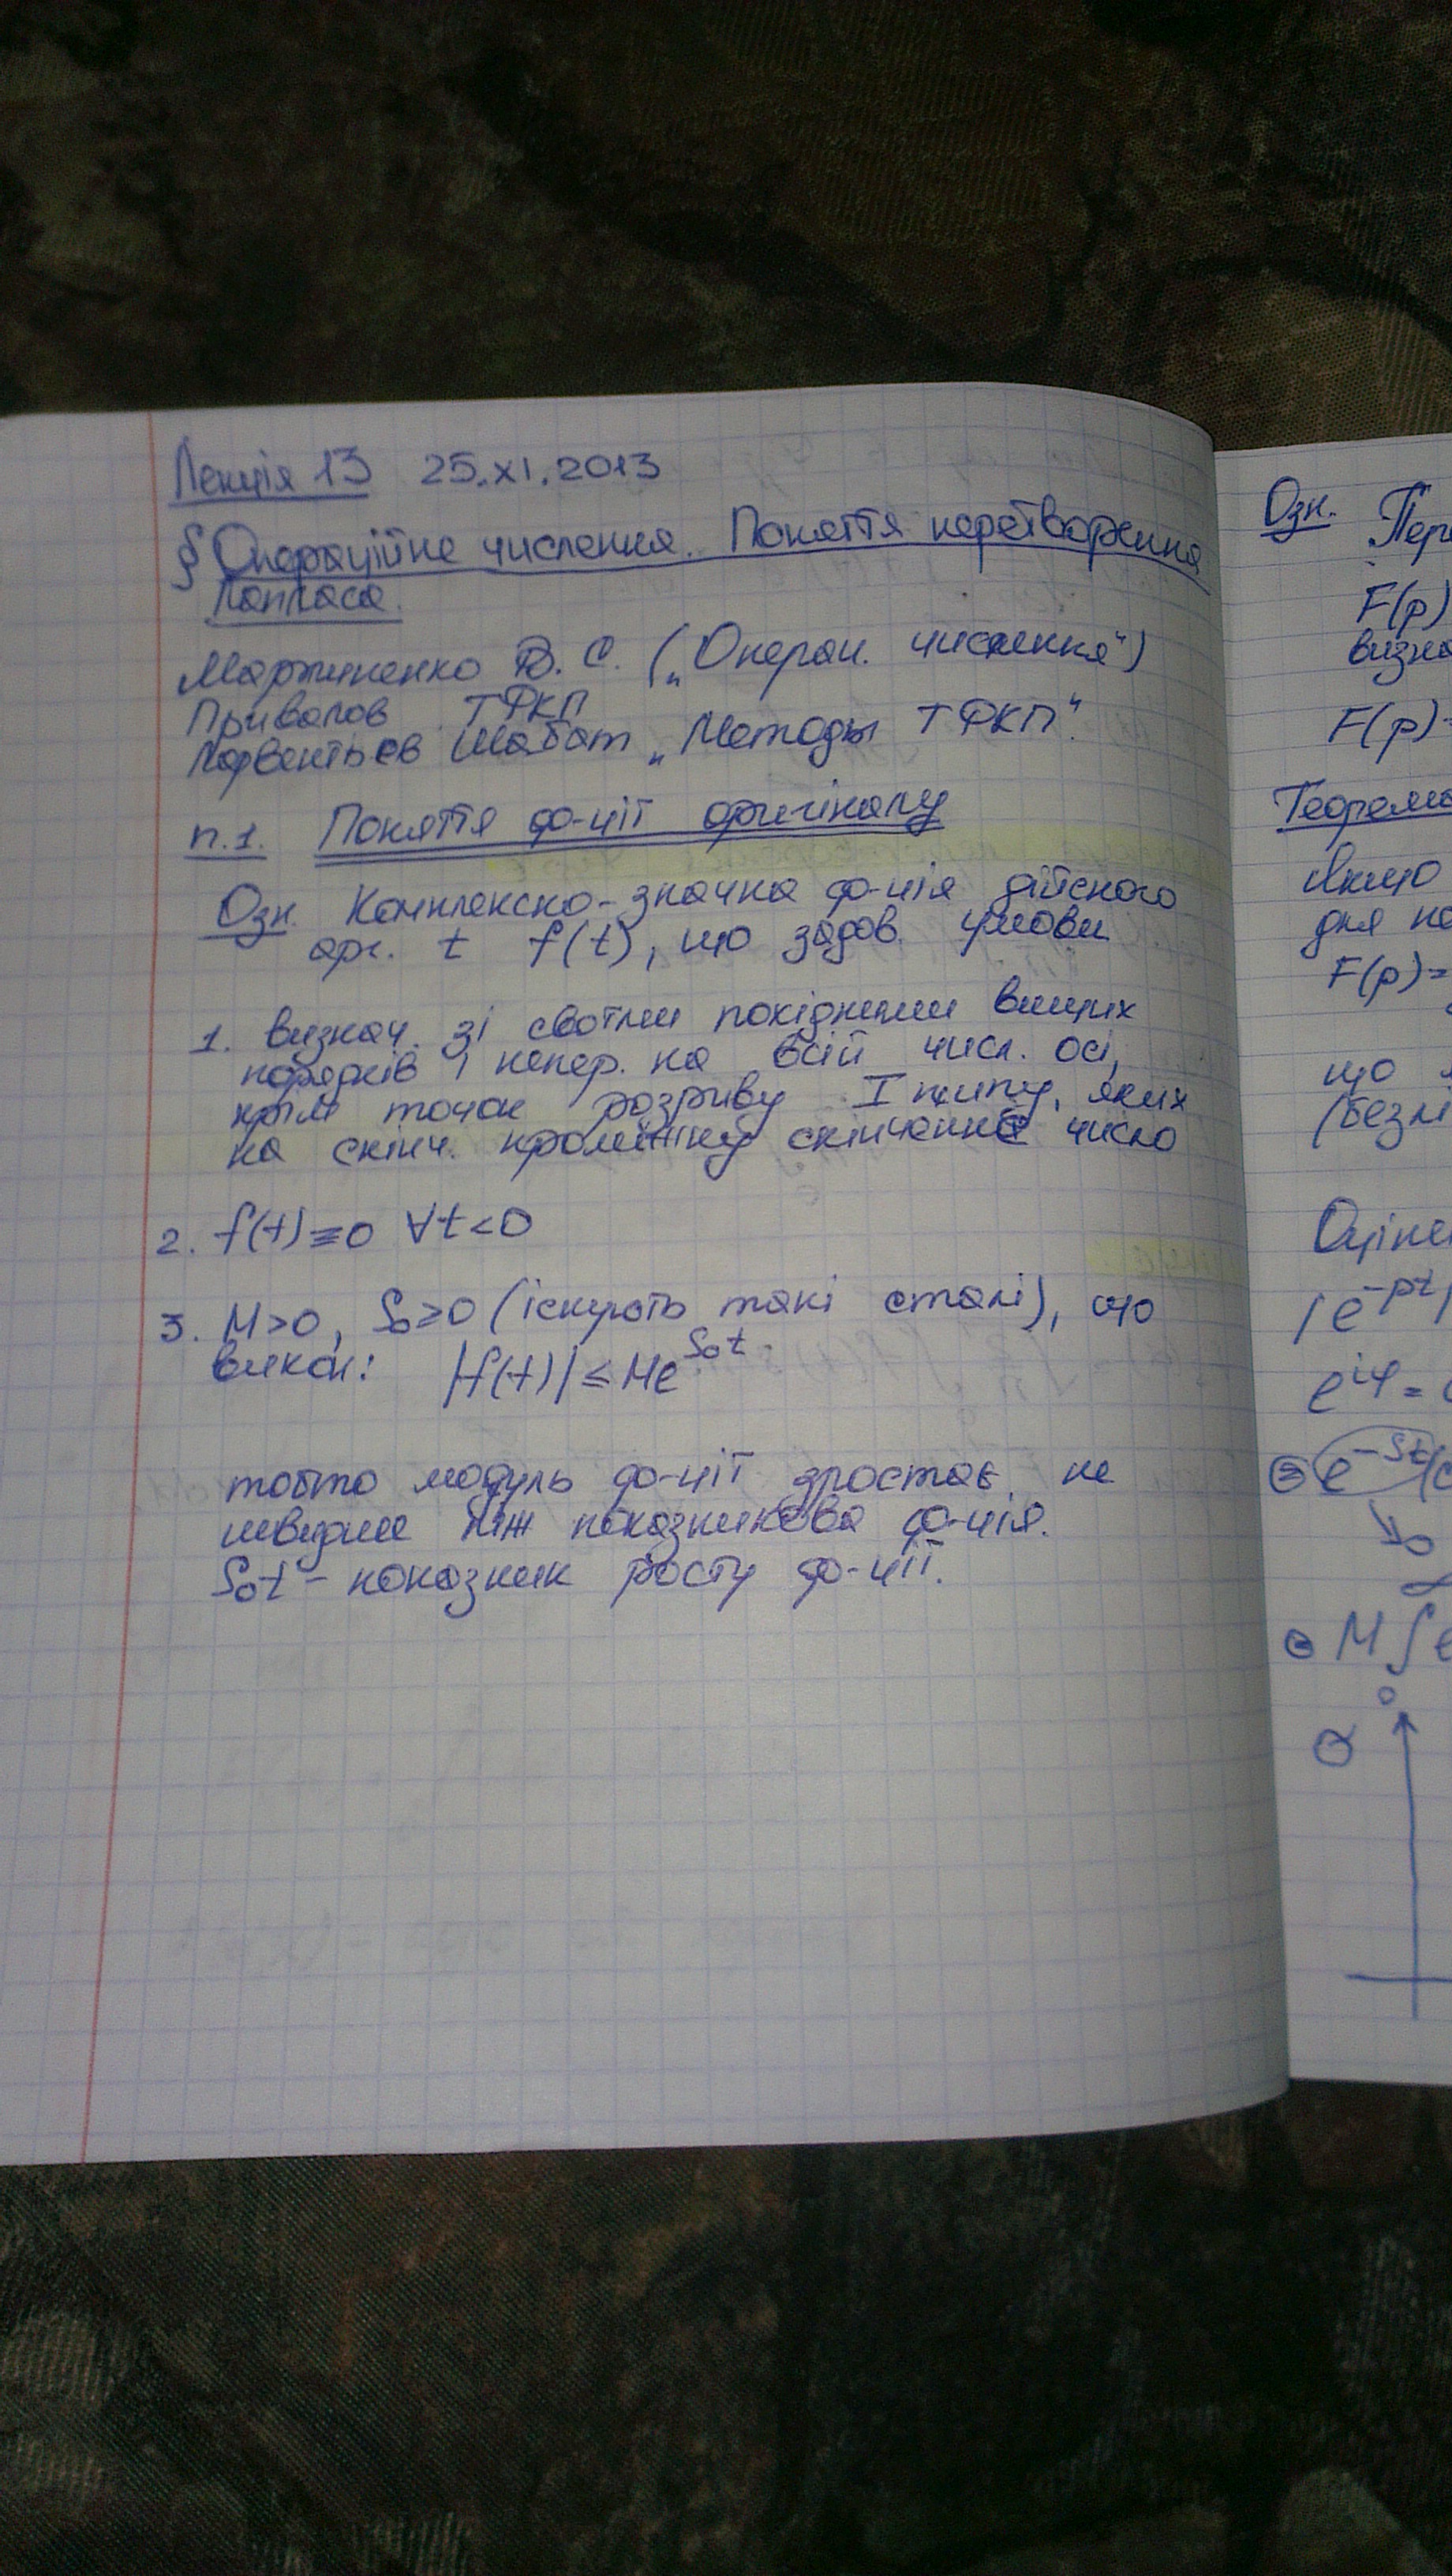 Лекція 13 25.XI.2013
§ Операційне числення. Поняття перетворення
Лапласа.
Мартиненко В. С. („Операц. числення“)
Привалов ТФКП
Лаврентьєв Шабат „Методы ТФКП“.
п.1. Поняття ф-ції оригіналу
Озн. Комплексно-значна ф-ція дійсного
арг. t f(t), що задов. умови
1. визнач. зі своїми похідними вищих
порядків і непер. на всій числ. осі,
крім точок розриву I типу, яких
на скінч. проміжку скінченне число
2. f(t)≡0 ∀t<0
3. M>0, S₀≥0 (існують такі сталі), що
викон: |f(t)| ≤ Me^{S₀t}.
тобто модуль ф-ції зростає не
швидше ніж показникова ф-ція.
S₀t – показник росту ф-ції.
Озн. Пере
F(p)
визна
F(p)=
Теорема
Якщо
для
F(p)=
що
(безм
Оціне
|e^{-pt}|
e^{iφ}=
e^{-St}(
→0
M∫e
0